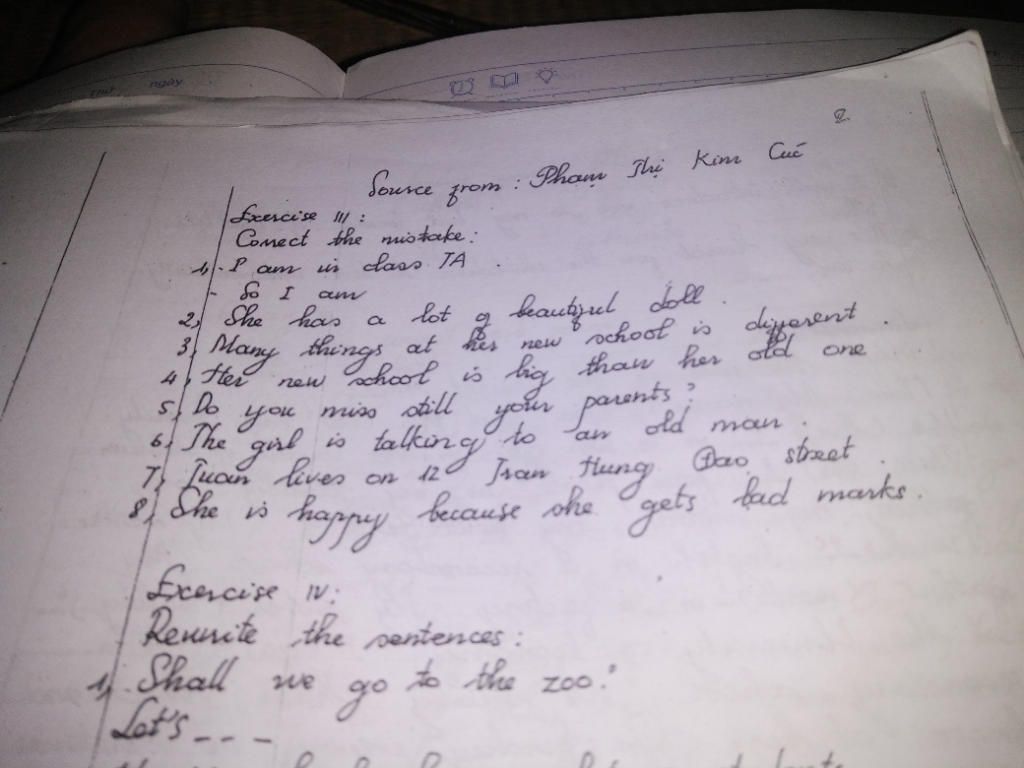 ngày
2
Source from: Phạm Thị Kim Cúc
Exercise III:
Correct the mistake:
1, - I am in class 7A.
- So I am
2, She has a lot of beautiful doll.
3, Many things at her new school is different.
4, Her new school is big than her old one
5, Do you miss still your parents?
6, The girl is talking to an old man.
7, Tuan lives on 12 Tran Hung Đao street.
8, She is happy because she gets bad marks.
Exercise IV:
Rewrite the sentences:
1, Shall we go to the zoo?
Let's _ _ _